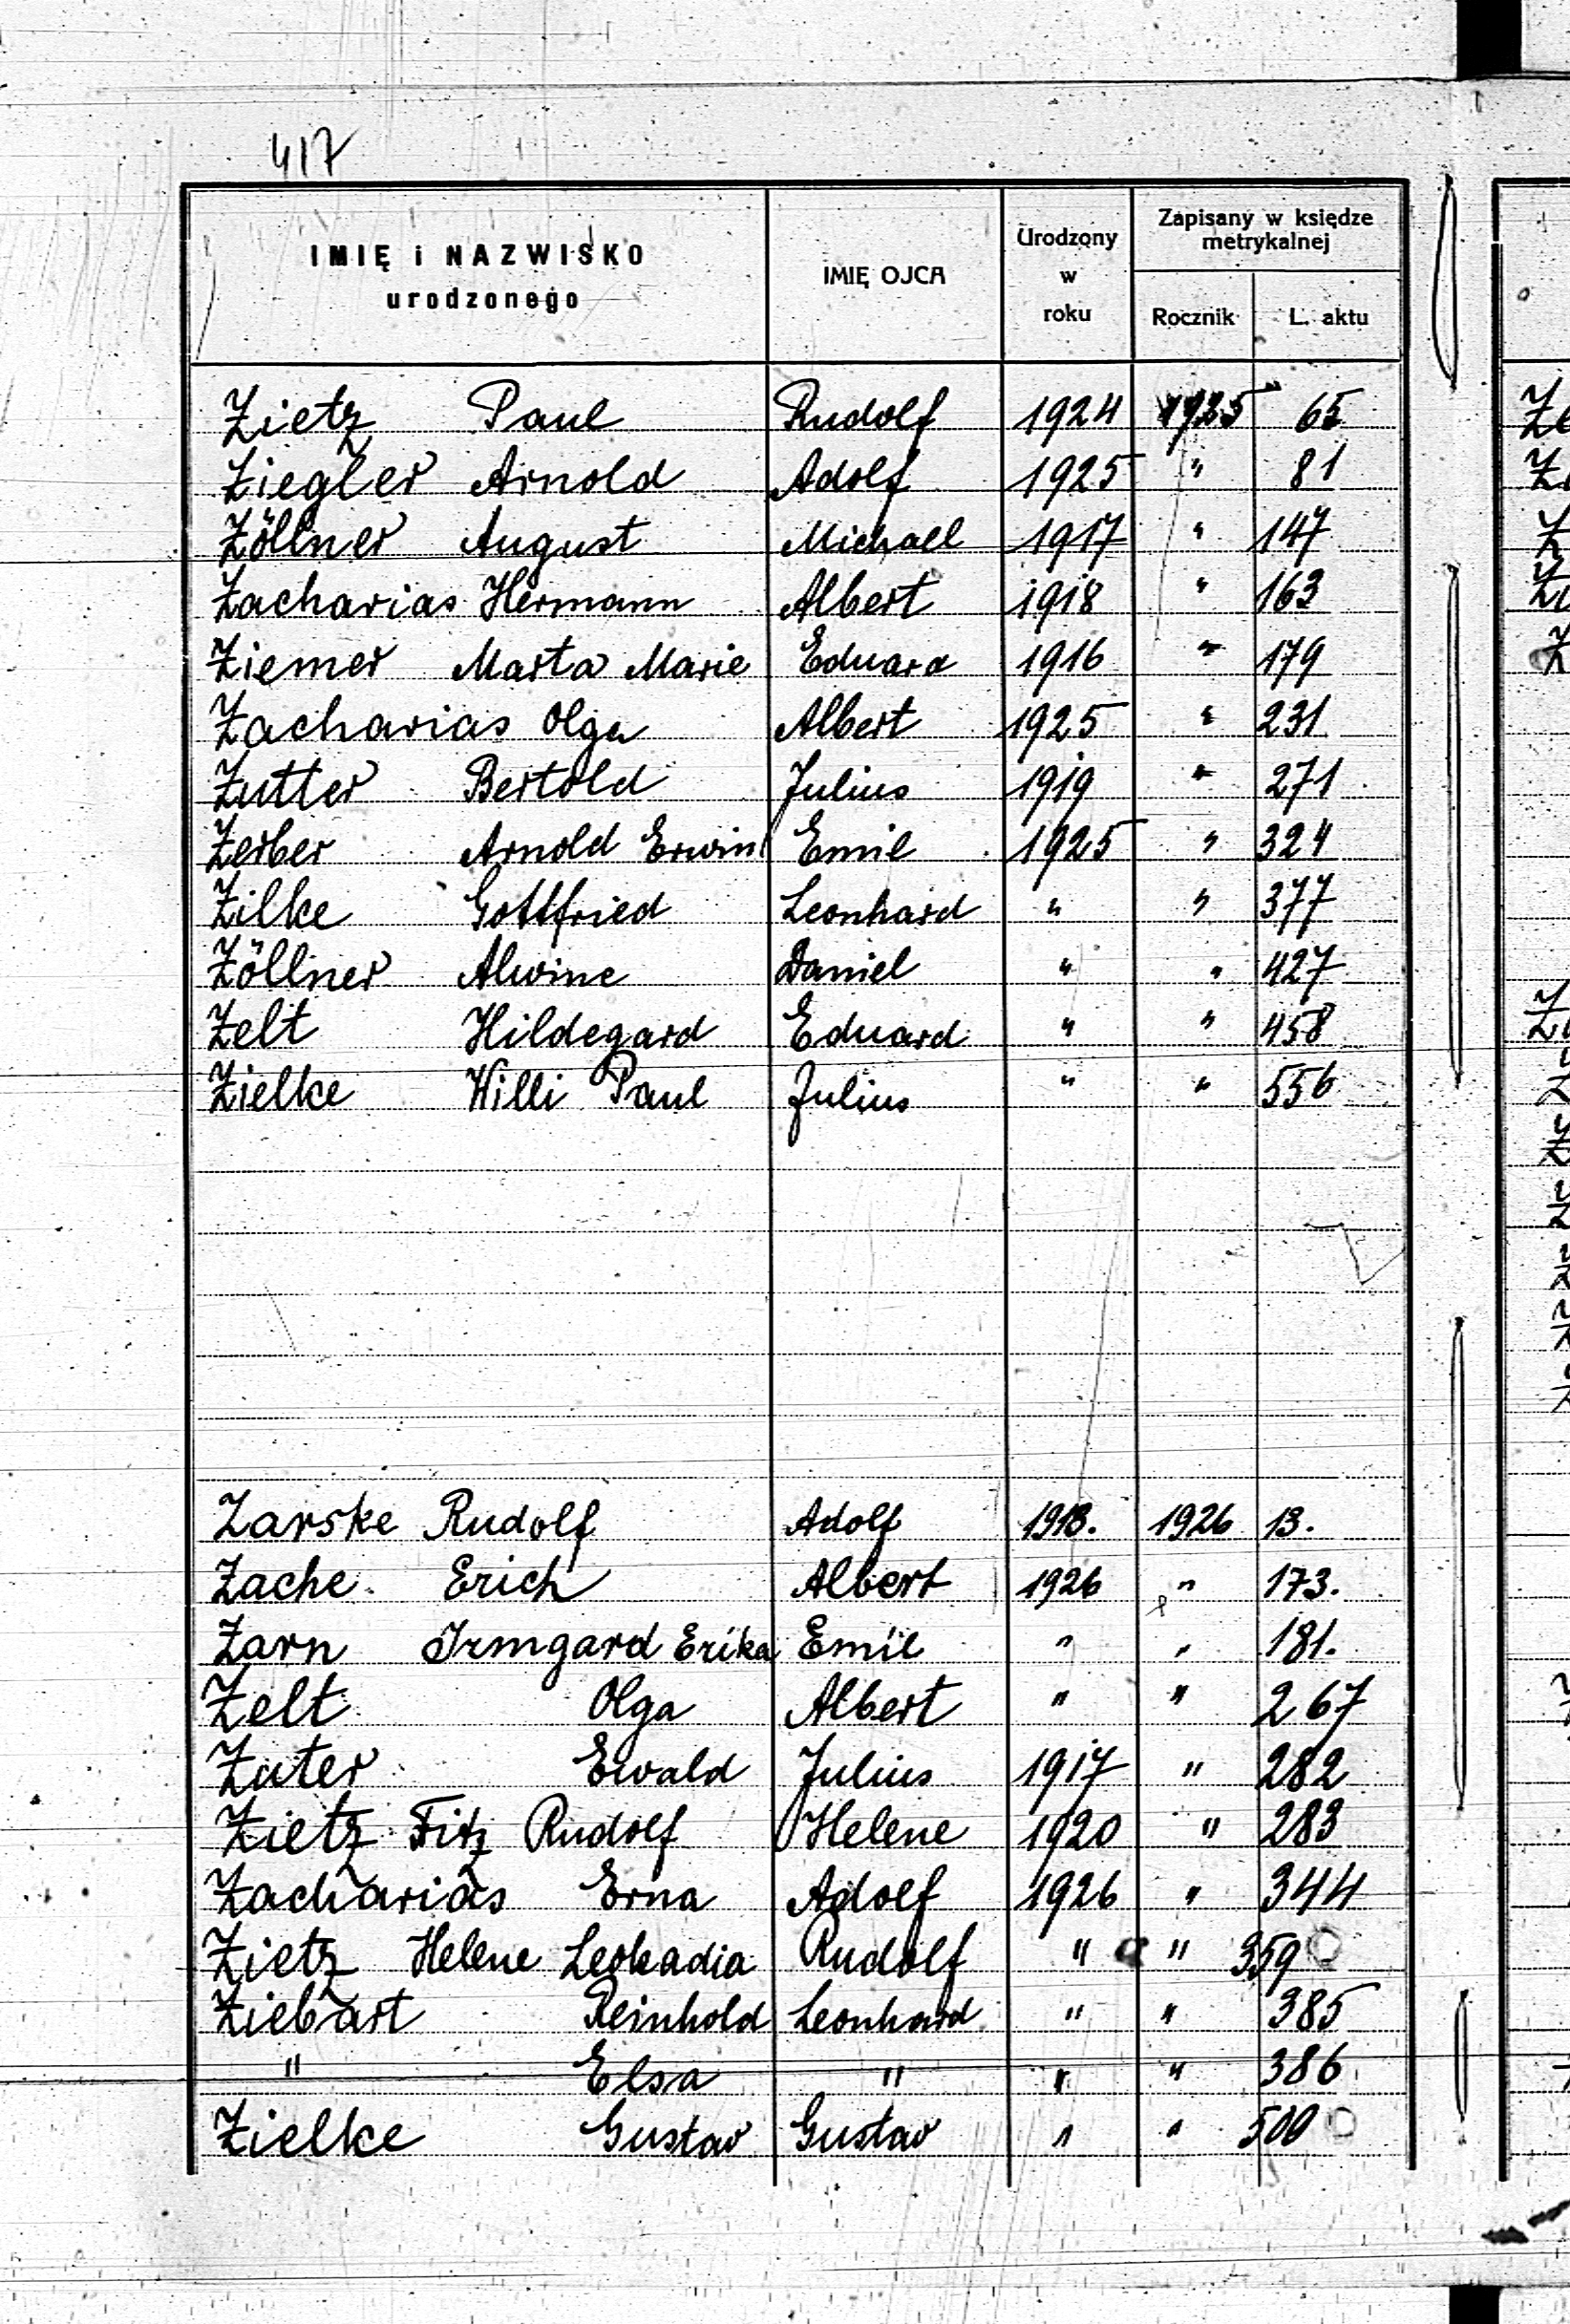 417
IMIĘ i NAZWISKO
urodzonego
IMIĘ OJCA
Urodzony
w
roku
Zapisany w księdze
metrykalnej
Rocznik
L. aktu
Zietz Paul Rudolf 1924 1925 65
Ziegler Arnold Adolf 1925 " 81
Zöllner August Michael 1917 " 147
Zacharias Hermann Albert 1918 " 163
Ziemer Marta Marie Eduard 1916 " 179
Zacharias Olga Albert 1925 " 231
Zutter Bertold Julius 1919 " 271
Zerber Arnold Erwin Emil 1925 " 324
Zilke Gottfried Leonhard " " 377
Zöllner Alwine Daniel " " 427
Zelt Hildegard Eduard " " 458
Zielke Willi Paul Julius " " 556
Zarske Rudolf Adolf 1918. 1926 13.
Zache Erich Albert 1926 " 173.
Zarn Irmgard Erika Emil " " 181.
Zelt Olga Albert " " 267
Zuter Ewald Julius 1917 " 282
Zietz Fitz Rudolf Helene 1920 " 283
Zacharias Erna Adolf 1926 " 344
Zietz Helene Leokadia Rudolf " " 359
Ziebart Reinhold Leonhard " " 385
" Elsa " " " 386
Zielke Gustav Gustav " " 500